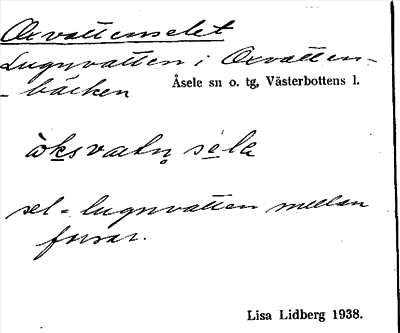 Oxvattenselet
Lugnvatten i Oxvatten-
- bäcken Åsele sn o. tg, Västerbottens l.
òksvatn sele
sel = lugnvatten mellan
forsar.
Lisa Lidberg 1938.